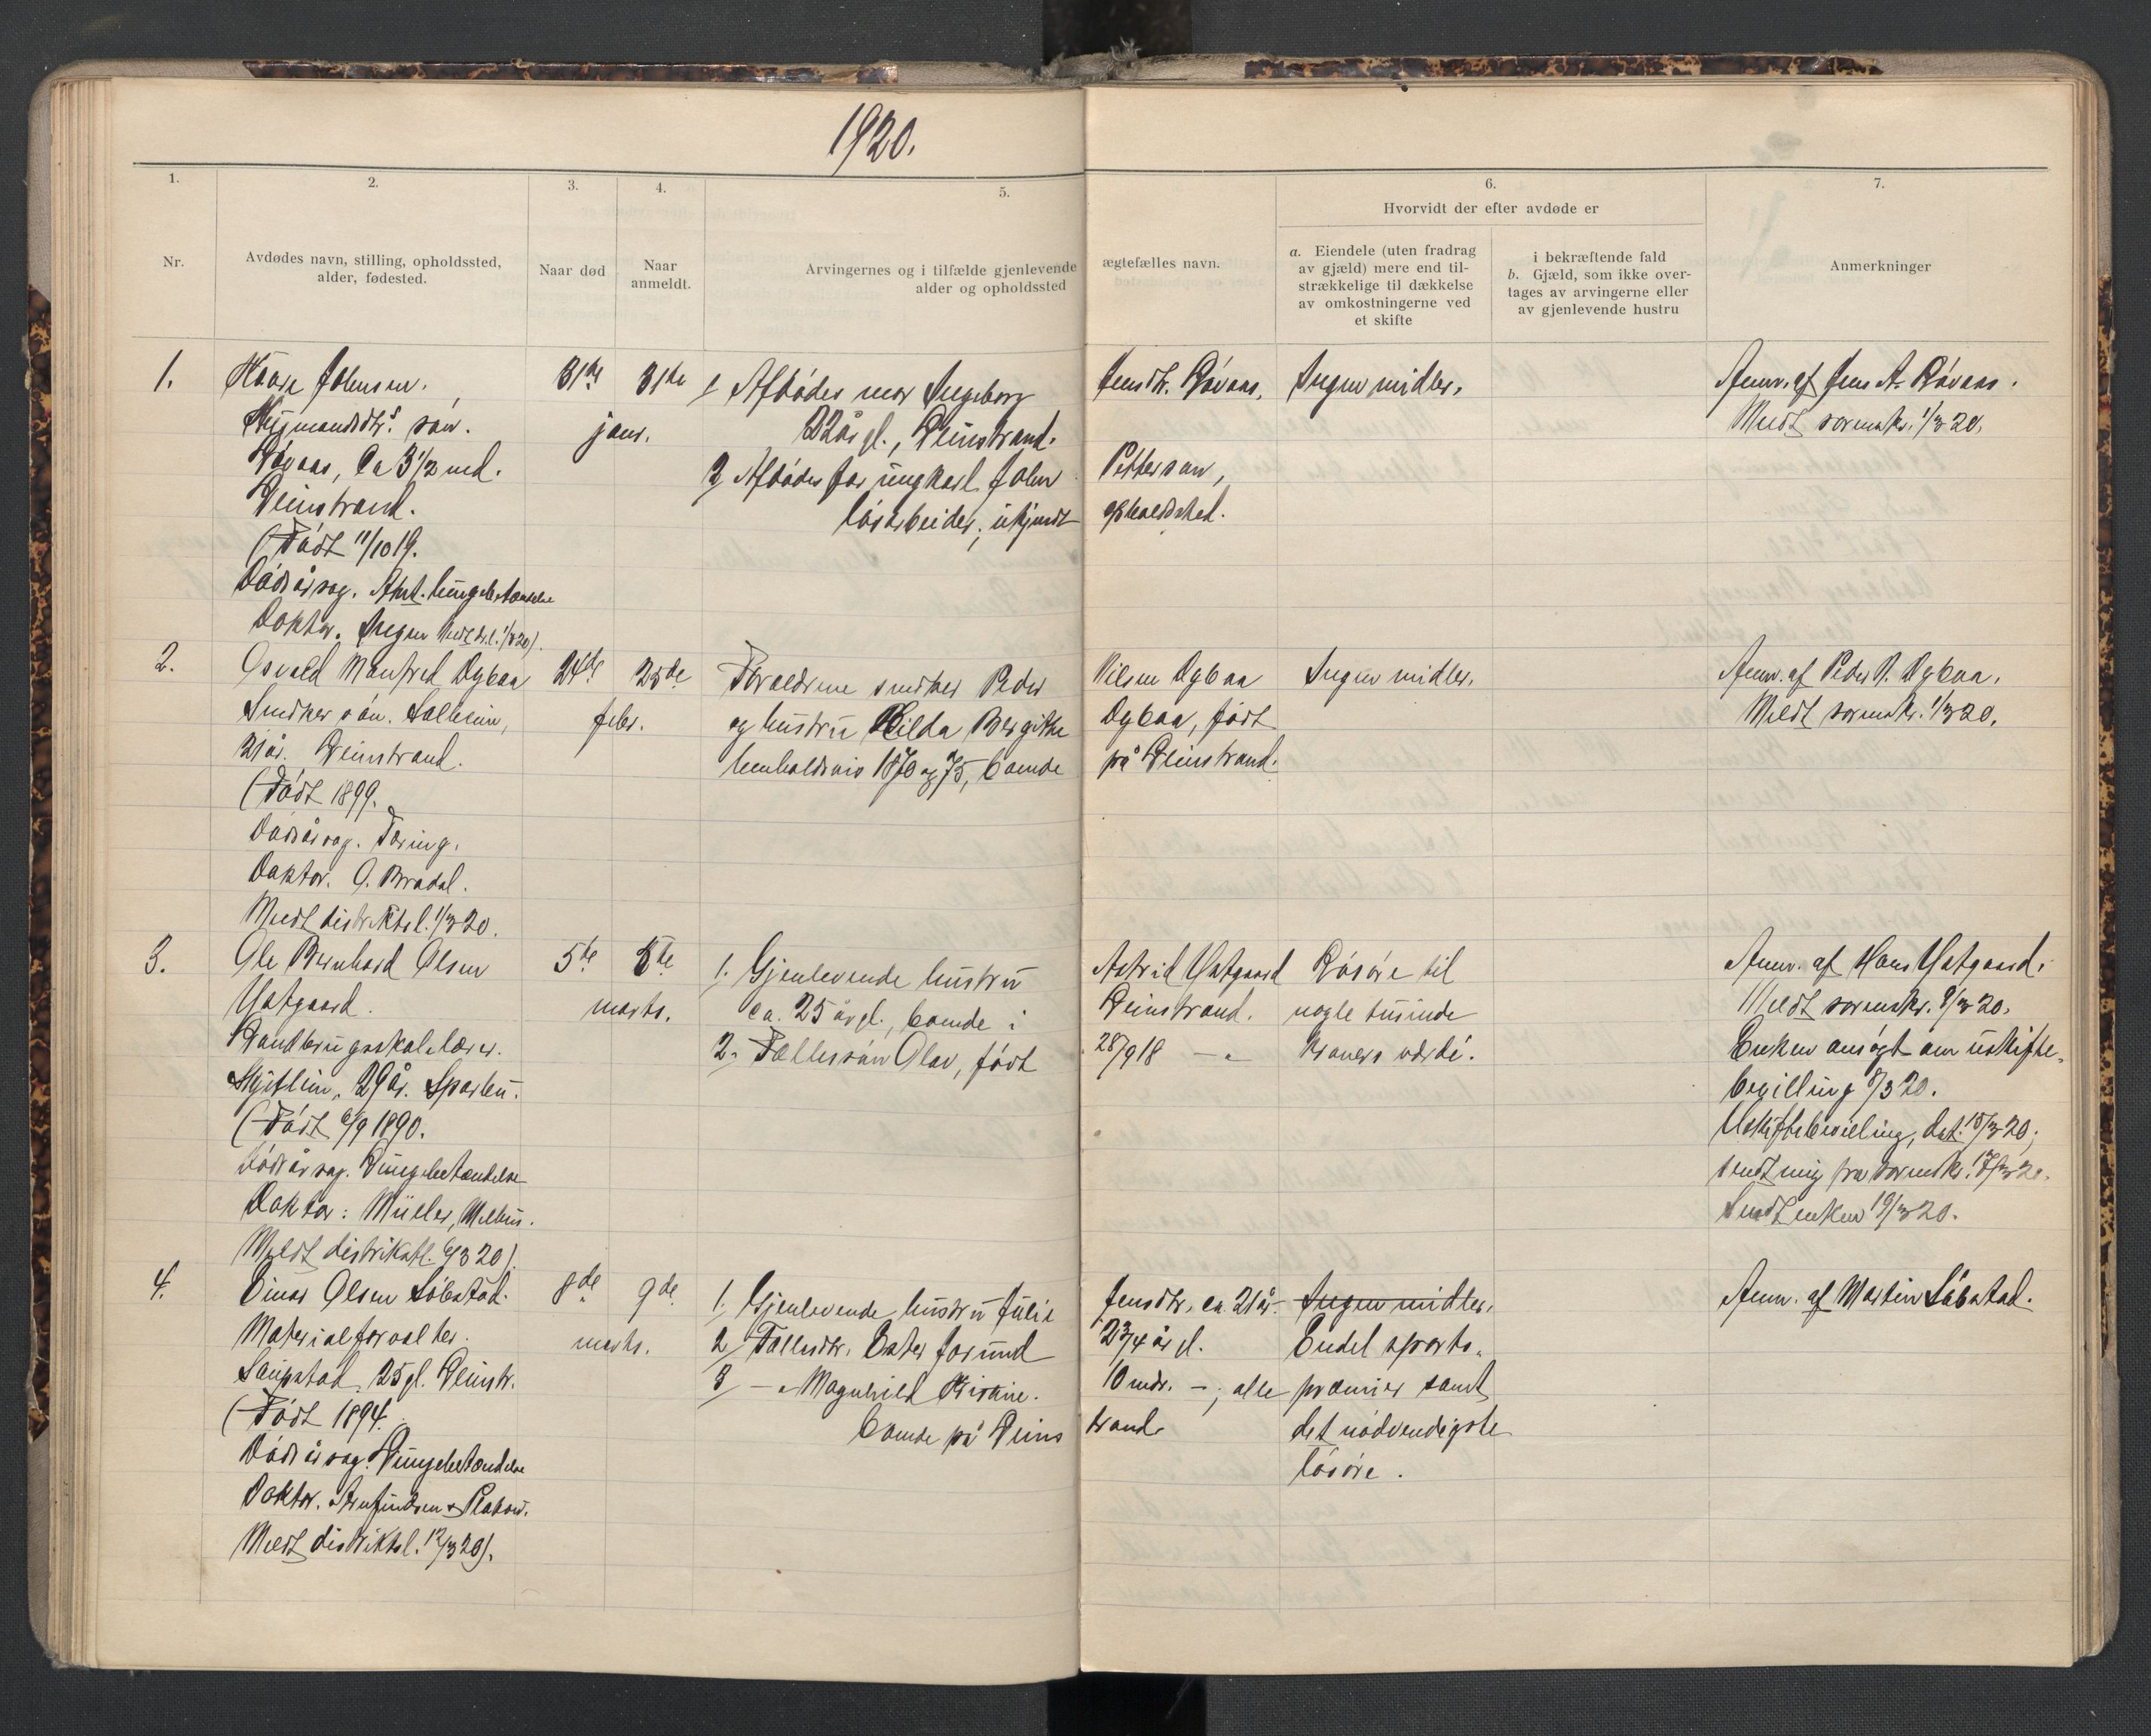 1920.
1.
2.
3.
4.
5.
6.
7.
Nr.
Avdødes navn, stilling, opholdssted,
alder, fødested.
Naar død
Naar
anmeldt.
Arvingernes og i tilfælde gjenlevende
ægtefælles navn.
alder og opholdssted
Hvorvidt der efter avdøde er
a. Eiendele (uten fradrag
av gjæld) mere end til-
strækkelige til dækkelse
av omkostningerne ved
et skifte
i bekræftende fald
b. Gjæld, som ikke over-
tages av arvingerne eller
av gjenlevende hustru
Anmerkninger
1.
Johnsen.
søn.
Ca 3 1/2 md.
(Født 11/10 19.
Dødsårsag. Akut. lungebetændelse
Doktor. Ingen
31te 31te
janr.
1/ Afdødes mor Ingeborg
Jensdtr. Røvaas,
22 år gl.,
2/ Afdødes far ungkarl John
Pettersen,
løsarbeider, ukjendt
opholdssted.
Ingen midler.
Anm. af Jens A. Røvaas.
Meldt sorenskr. 1/3 20.
2.
Osvald Manfred Dybaa
Snedkersøn.
21 år.
(Født 1899.
Dødsårsag. Tæring.
Doktor. O. Bradal.
Meldt distriktsl. 1/3 20.
24de 25de
febr.
Forældrene snedker Peder
Nilsen Dybaa
og hustru Hilda Bergitte
Dybaa, født
henholdsvis 1870 og 75, boende
på
Ingen midler.
Anm. af Peder N. Dybaa.
Meldt sorenskr. 1/3 20.
3.
Ole Bernhard Olsen
Landbrugsskolelærer.
29 år. Sparbu.
(Født 6/9 1890.
Dødsårsag. Lungebetændelse
Doktor: Müller, Melhus.
Meldt distriktsl. 6/3 20).
5te 8de
marts.
1. Gjenlevende hustru
Astrid
ca. 25 år gl., boende i
2. Fællessøn Olav, født
28/9 18 — "
Løsøre til
nogle tusinde
kroners værdi.
Anm. af Hans
Meldt sorenskr. 8/3 20.
Enken ansøgt om uskifte-
bevilling 8/3 20.
Uskiftebevilling, dat. 15/3 20,
sendt mig fra sorenskr. 17/3 20.
Sendt enken 19/3 20.
4.
Einar Olsen Løbstad.
Materialforvalter.
25 gl.
(Født 1894.
Dødsårsag. Lungebetændelse
Doktor. Arnfindsen &
Meldt distriktsl. 12/3 20).
8de 9de
marts.
1. Gjenlevende hustru Julie
Jensdtr., ca. 21 år.
2/ Fællesdtr. Ester Jorund
2 3/4 år gl.
3/ — " Magnhild Kristine.
10 mdr. —; alle
boende på
Ingen midler.
Endel sports-
præmier samt
det nødvendigste
løsøre.
Anm. af Martin Løbstad.